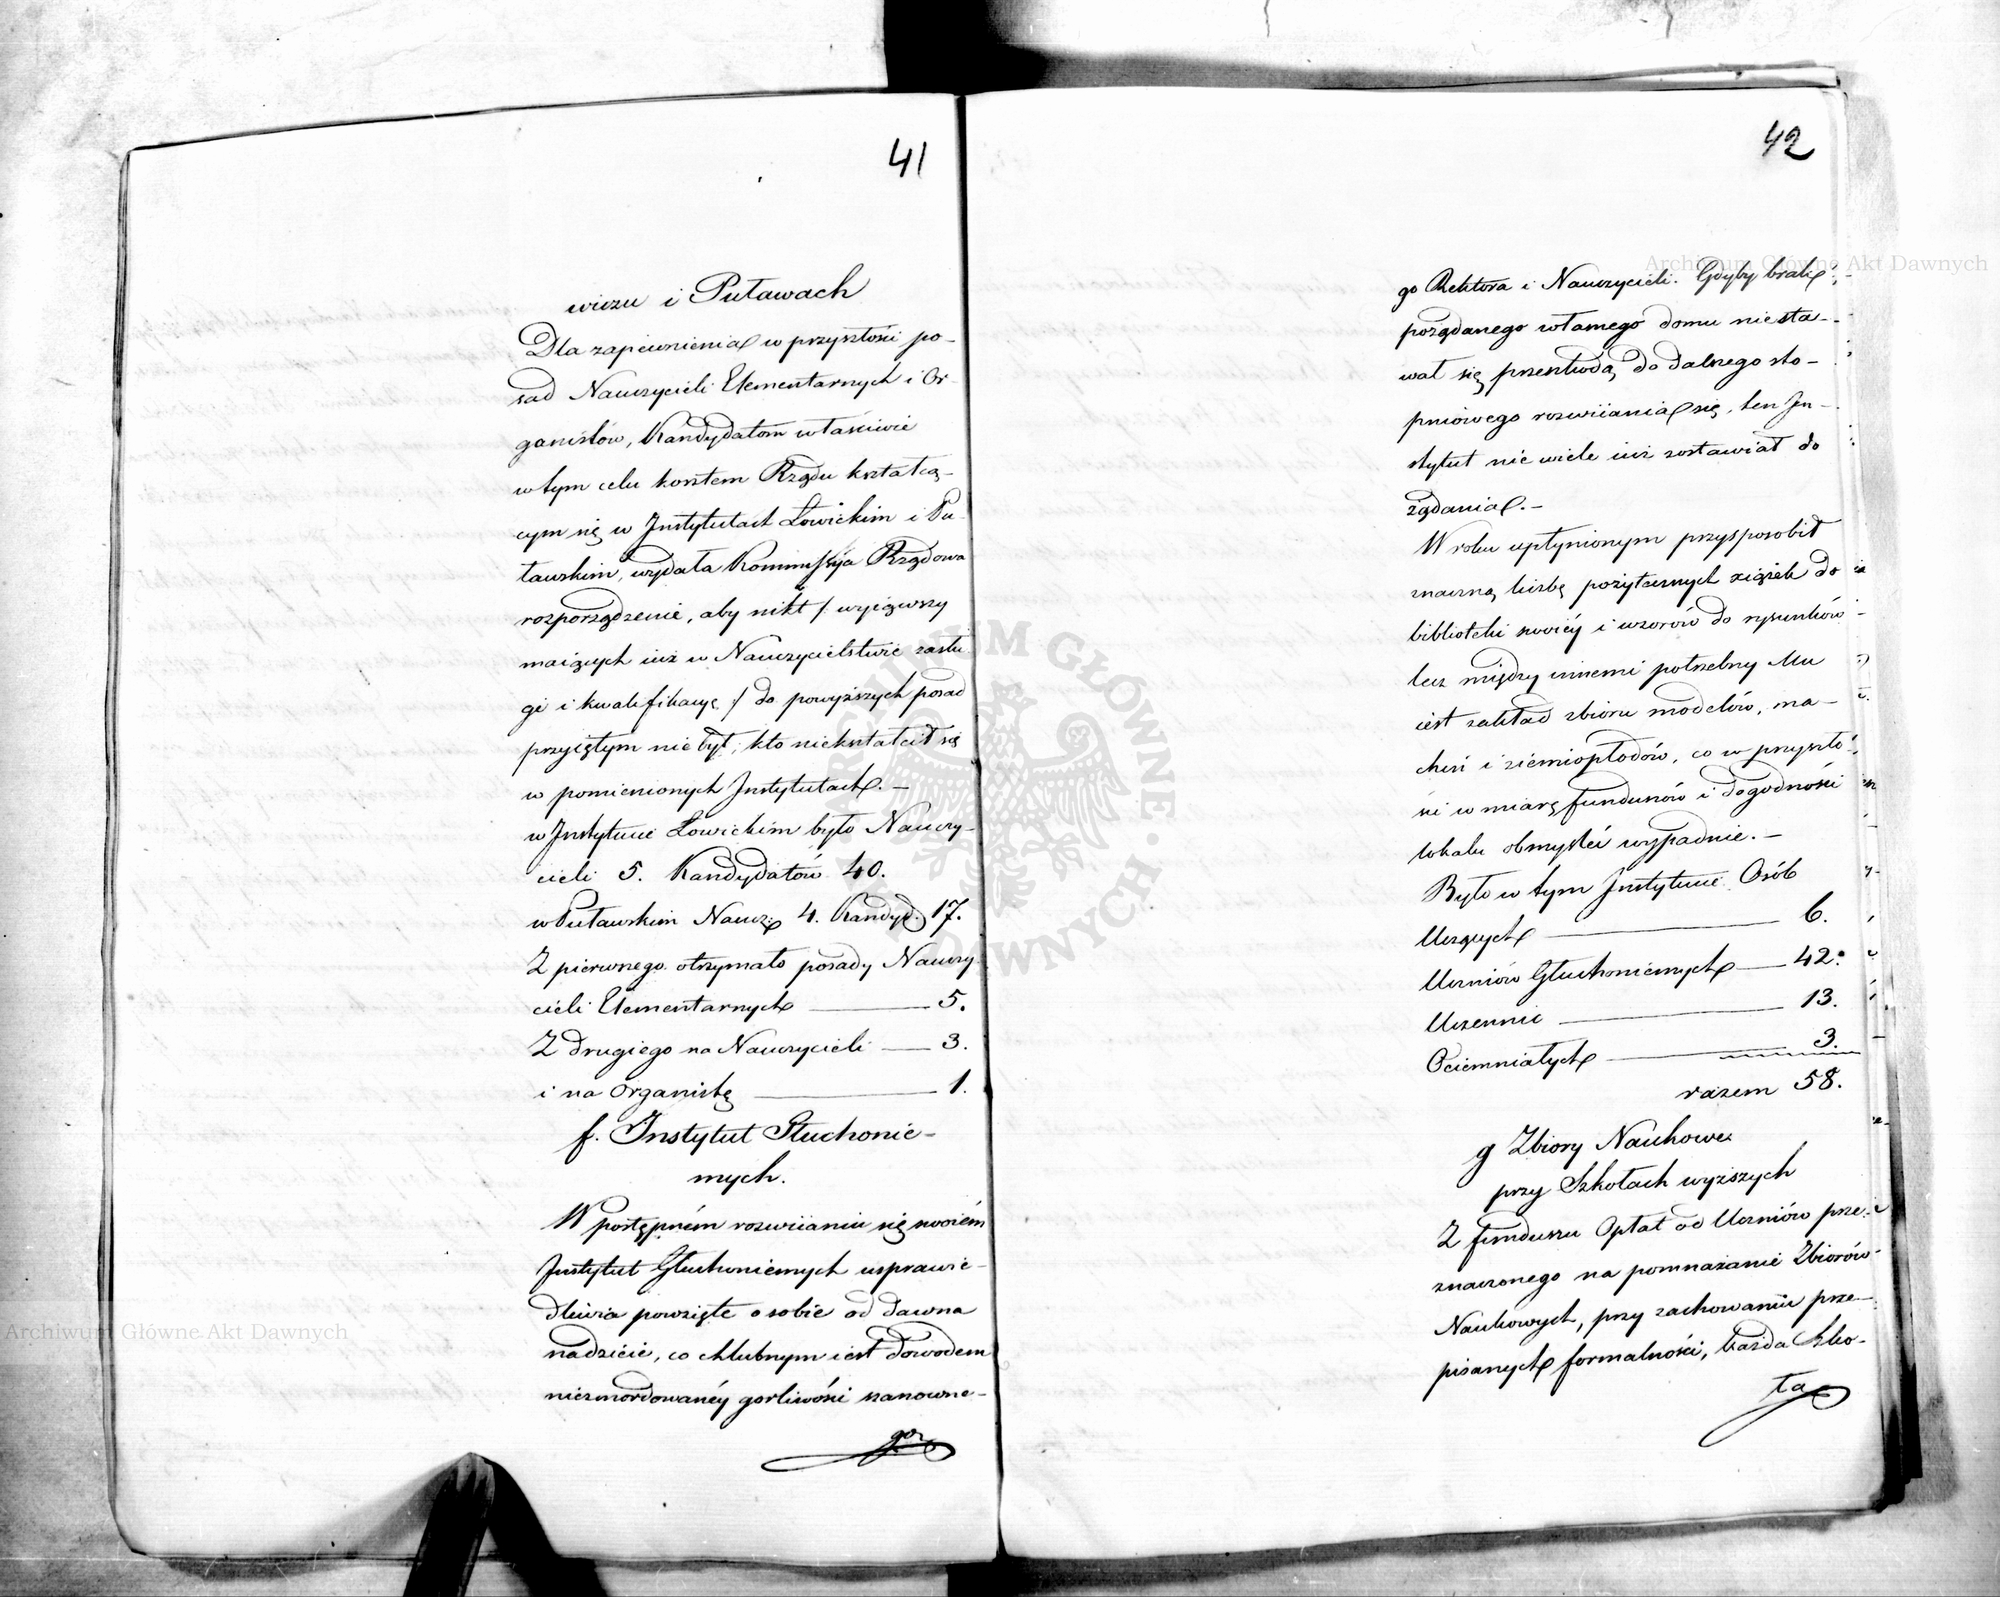 41
wiczu i Puławach
Dla zapewnienia w przyszłości po-
sad Nauczycieli Elementarnych i Or-
ganistów, Kandydatom właściwie
w tym celu kosztem Rządu kształcą-
cym się w Instytutach Łowickim i Pu-
ławskim, wydała Kommissyja Rządowa
rozporządzenie, aby nikt /: wyiąwszy
maiących iuż w Nauczycielstwie zasłu
gi i kwalifikacyę :/ do powyższych posad
przyiętym nie był, kto niekształcił się
w pomienionych Instytutach. —
w Instytucie Łowickim było Nauczy-
cieli 5. Kandydatów 40.
w Puławskim Naucz: 4. Kandyd. 17.
Z pierwszego otrzymało posady Nauczy
cieli Elementarnych — 5.
Z drugiego na Nauczycieli — 3.
i na Organistę — 1.
f. Instytut Głuchonie-
mych.
W postępném rozwiianiu się swoiém
Instytut Głuchoniemych usprawie-
dliwia powzięte o sobie od dawna
nadzieie, co chlubnym iest dowodem
niezmordowanéy gorliwości szanowne-
go
42
go Rektora i Nauczycieli. Gdyby brak
pożądanego własnego domu niesta-
wał się przeszkodą do dalszego sto-
pniowego rozwiiania się, ten In-
stytut nie wiele iuż zostawiał do
żądania. —
W roku upłynionym przysposobił
znaczną liczbę pożytecznych xiążek do
biblioteki swoiéy i wzorów do rysunków
lecz między innemi potrzebny Mu
iest zakład zbioru modelów, ma-
chin i ziemiopłodów, co w przyszło-
ści w miarę funduszów i dogodności
lokalu obmyśleć wypadnie. —
Było w tym Instytucie Osób
Uczących — 6.
Uczniów Głuchoniemych — 42.
Uczennic — 13.
Ociemniałych — 3.
razem 58.
g Zbiory Naukowe
przy Szkołach wyższych
Z funduszu Opłat od Uczniów prze-
znaczonego na pomnażanie Zbiorów
Naukowych, przy zachowaniu prze-
pisanych formalności, każda Szko-
ła
Archiwum Główne Akt Dawnych
Archiwum Główne Akt Dawnych
ARCHIWUM GŁÓWNE AKT DAWNYCH